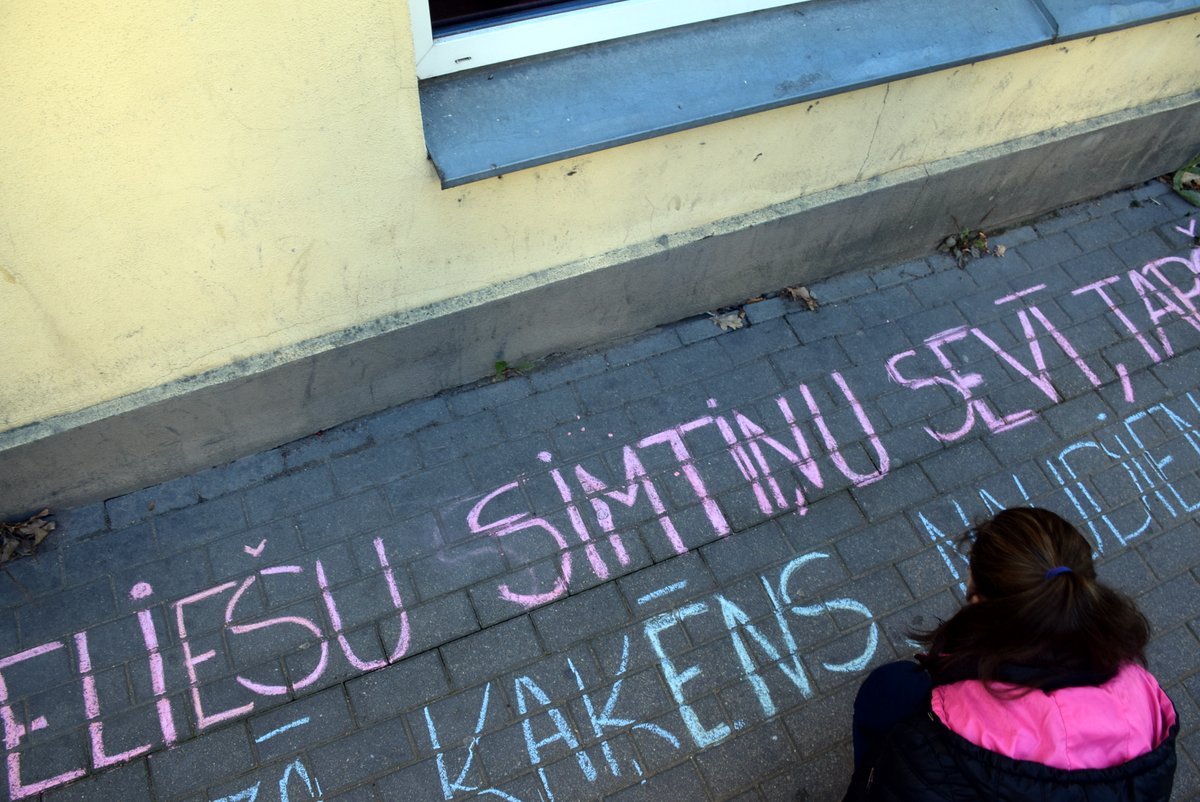 ELIEŠU SIMTIŅU SEVĪ, TAPŠ
KAĶĒNS